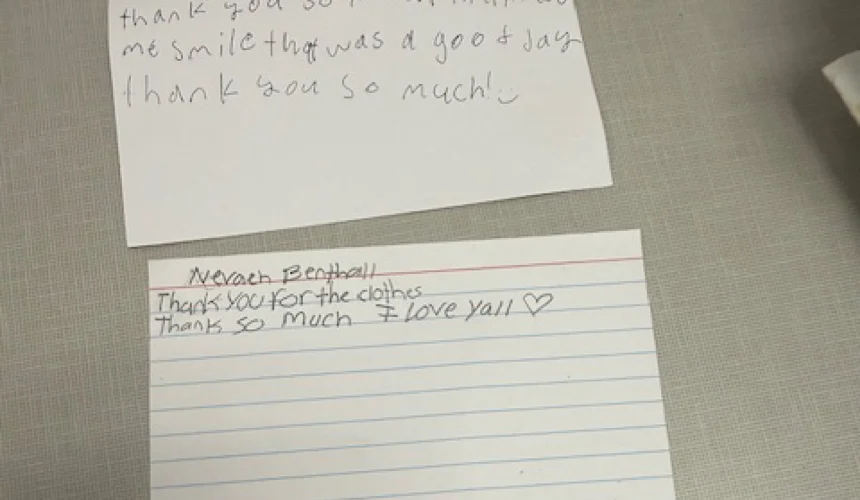 thank you so
me smile that was a good day
thank you so much!
Nevaeh Benthall
Thank you for the clothes
Thanks so much I love yall ♡